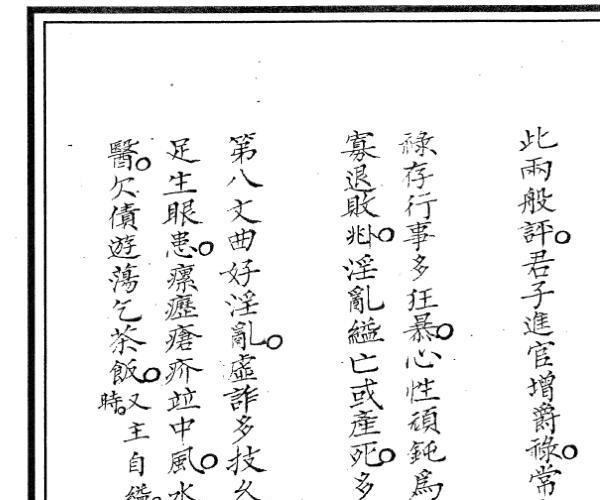 此兩般評。君子進官增爵祿。常
祿存行事多狂暴。心性頑鈍爲
寡退敗兆。淫亂縊亡或產死。多
第八文曲好淫亂。虛詐多技
足生眼患。瘰癧瘡疥竝中風。水
醫。欠債遊蕩乞茶飯。又主自縊。
時。